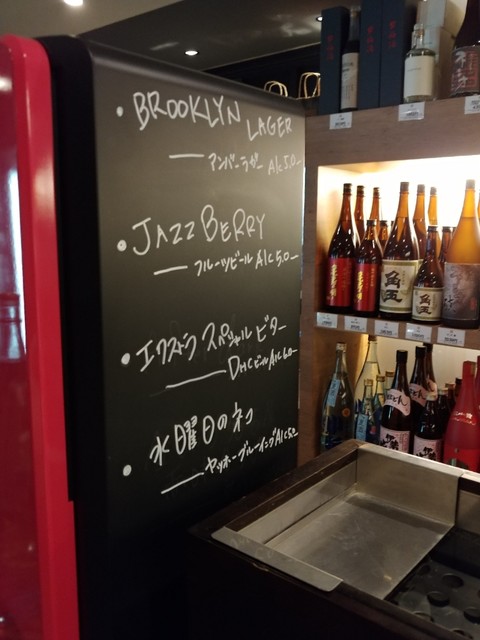 BROOKLYN LAGER
アンバーラガー Alc5.0
JAZZBERRY
フルーツビール Alc5.0
エクストラ スペシャル ビター
DHCビール Alc6.0
水曜日のネコ
ヤッホーブルーイング Alc5.0
角玉
角玉